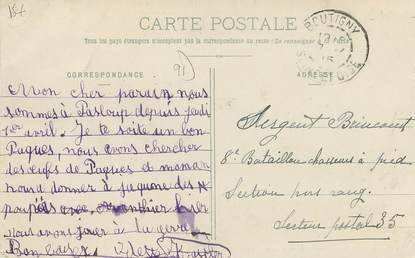 CARTE POSTALE
Tous les pays étrangers n'acceptent pas la correspondance au recto (Se renseigner
CORRESPONDANCE
91
ADRESSE
BOUTIGNY
Mon cher parain nous
sommes à Pasloup depuis jeudi
1er avril. Je te soite un bon
Paques, nous avons chercher
des œufs de Paques et maman
nous a donner à jaquome des
poupées
nous avons jouer à la gerre
Bon baiser
Sergent Brincourt
8e Bataillon chasseurs à pied
Section hors rang.
Secteur postal 35